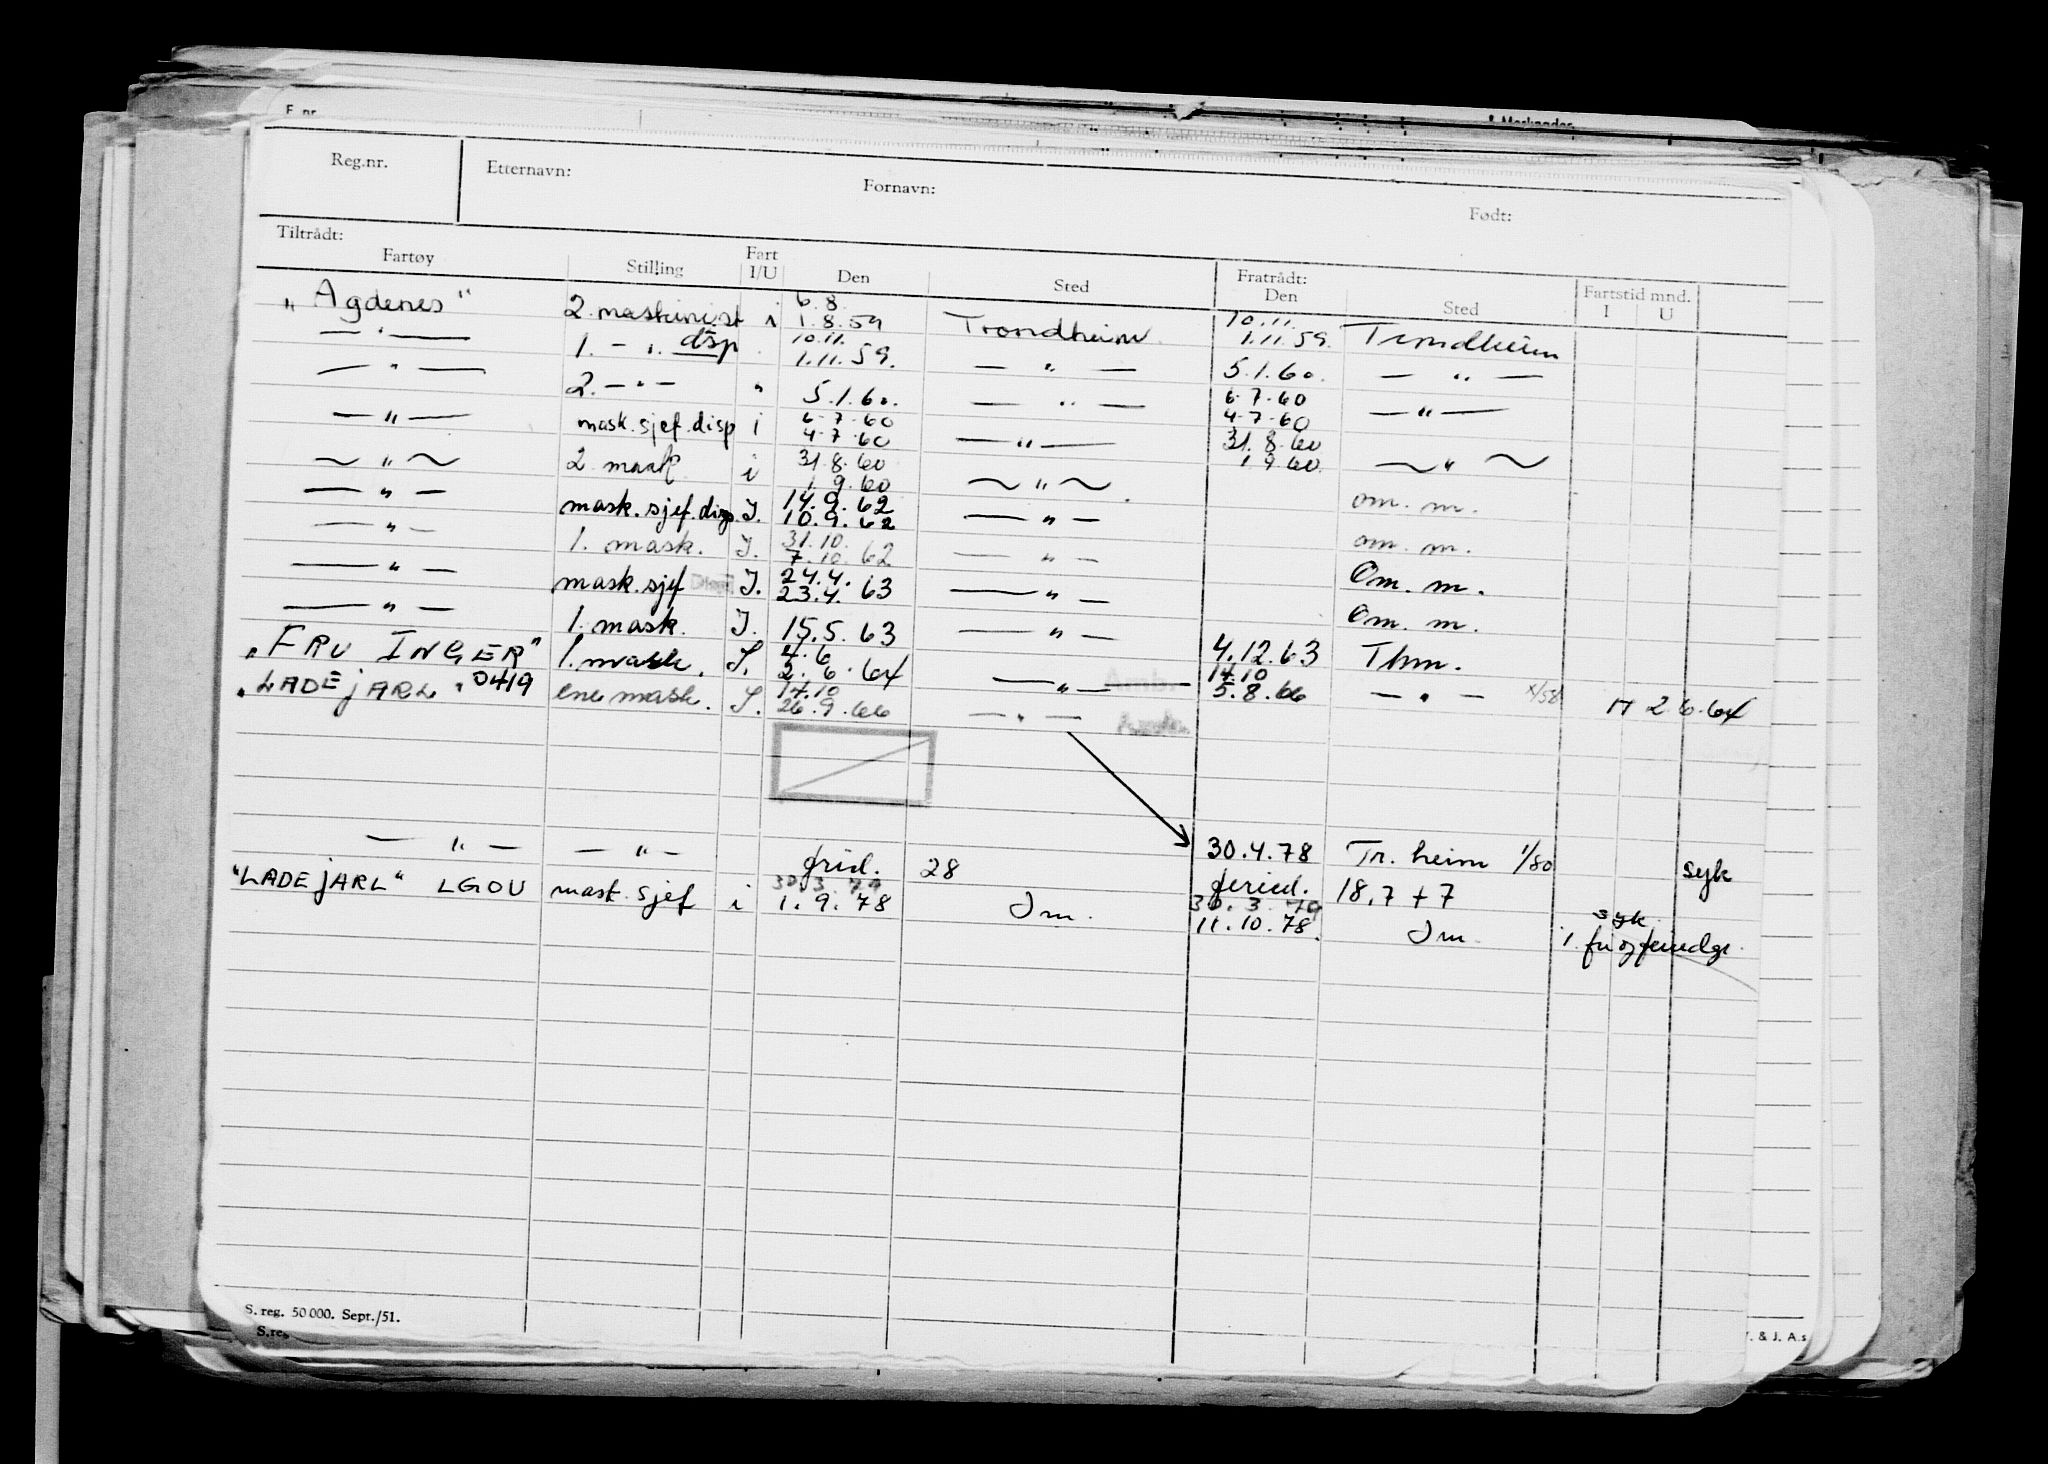 Reg.nr. Etternavn: Fornavn: Født:
Tiltrådt: Fratrådt: Fartstid mnd.
Fartøy Stilling Fart I/U Den Sted Den Sted I U
"Agdenes" 2. maskinist i 6.8. 1.8.59 Trondheim 10.11. 1.11.59. Trondheim
— " — 1. — " . disp 10.11. 1.11.59. — " — 5.1.60. — " —
— " — 2. — " — " 5.1.60. — " — 6-7-60 4-7-60 — " —
— " — mask.sjef.disp i 6-7-60 4-7-60 — " — 31.8.60 1.9.60. — " —
~ " ~ 2 mask i 31.8.60 1.9.60 ~ " ~ om. m.
— " — mask.sjef.disp. I. 14.9.62 10.9.62 — " — om. m.
— " — 1. mask. I. 31.10. 7.10.62 — " — Om. m.
— " — mask.sjef Disp I. 24.4. 23.4.63 — " — Om. m.
— " — 1. mask. I. 15.5.63 — " — 4.12.63 Thm.
"FRU INGER" 1. mask. I. 4.6 2.6.64 — " — 14.10 5.8.66 — " — X/58 H 2.6.64
"LADEJARL" 0419 ene mask. I. 14.10 26.9.66 — " —
— " — — " — 30.4.78 Tr. heim 1/80 syk
28 18.7 + 7
"LADEJARL" LGOU mask.sjef i 30.3.79 1.9.78 Im. 30.3.79 11.10.78. Im. syk
S. reg. 50 000. Sept./51.
S.reg
. & J. A.s